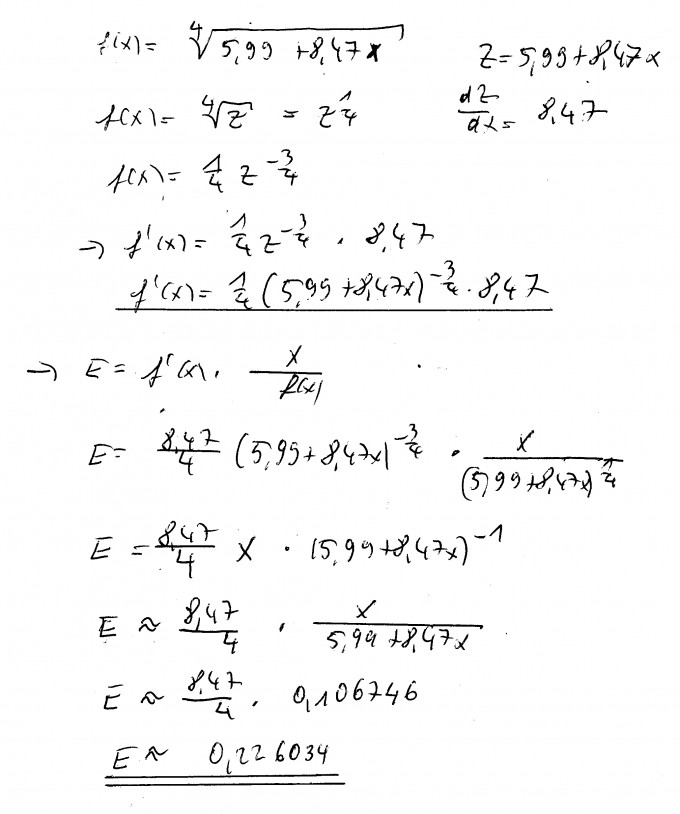 f(x) = ∜(5,99 + 8,47x)    z = 5,99 + 8,47x
f(x) = ∜z = z^(1/4)    dz/dx = 8,47
f(x) = 1/4 z^(-3/4)
→ f'(x) = 1/4 z^(-3/4) · 8,47
f'(x) = 1/4 (5,99 + 8,47x)^(-3/4) · 8,47
→ E = f'(x) · x/f(x)
E = 8,47/4 (5,99 + 8,47x)^(-3/4) · x/(5,99 + 8,47x)^(1/4)
E = 8,47/4 x · (5,99 + 8,47x)^(-1)
E ≈ 8,47/4 · x/(5,99 + 8,47x)
E ≈ 8,47/4 · 0,106746
E ≈ 0,226034